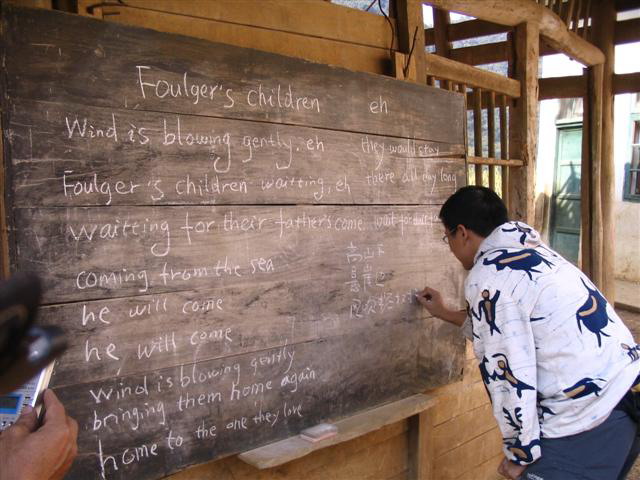 Foulger's children eh
Wind is blowing gently. eh they would stay
Foulger's children waitting, eh there all day long
Waitting for their father's come wait for
coming from the sea
he will come
he will come
Wind is blowing gently
bringing them home again
home to the one they love
高山下
悬崖